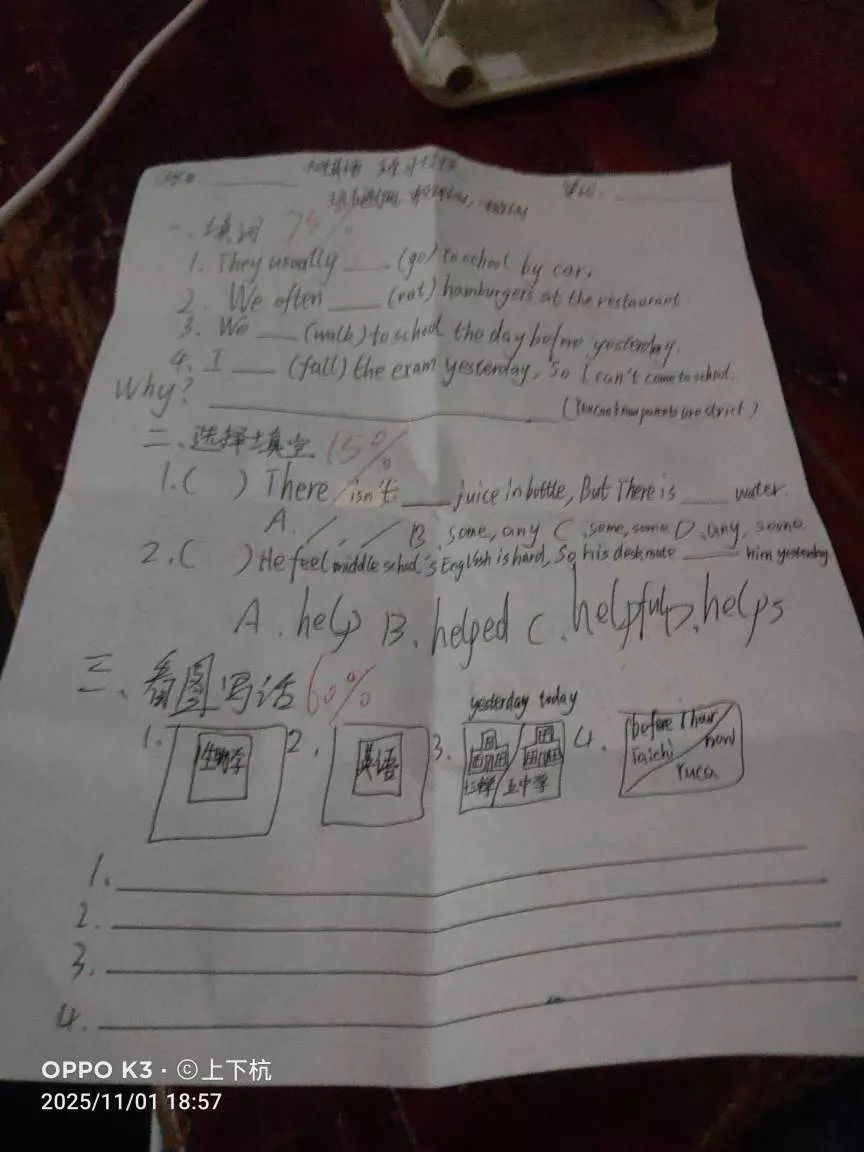 一、填词 25%
1. They usually ____ (go) to school by car.
2. We often ____ (eat) hamburgers at the restaurant.
3. We ___ (walk) to school the day before yesterday.
4. I ___ (fall) the exam yesterday, So I can't come to school.
Why? ____________ (parents are strict)
二、选择填空 15%
1. ( ) There isn't ____ juice in bottle, But There is ____ water.
A. /, / B. some, any C. some, some D. any, some
2. ( ) He feel middle school's English is hard, So his deskmate ____ him yesterday.
A. help B. helped C. helpful D. helps
三、看图写话 60%
yesterday today
1. 生物学 2. 英语 3. 五中学 4. before 1 hour Taichi now
1.
2.
3.
4.
OPPO K3 · ©上下杭
2025/11/01 18:57